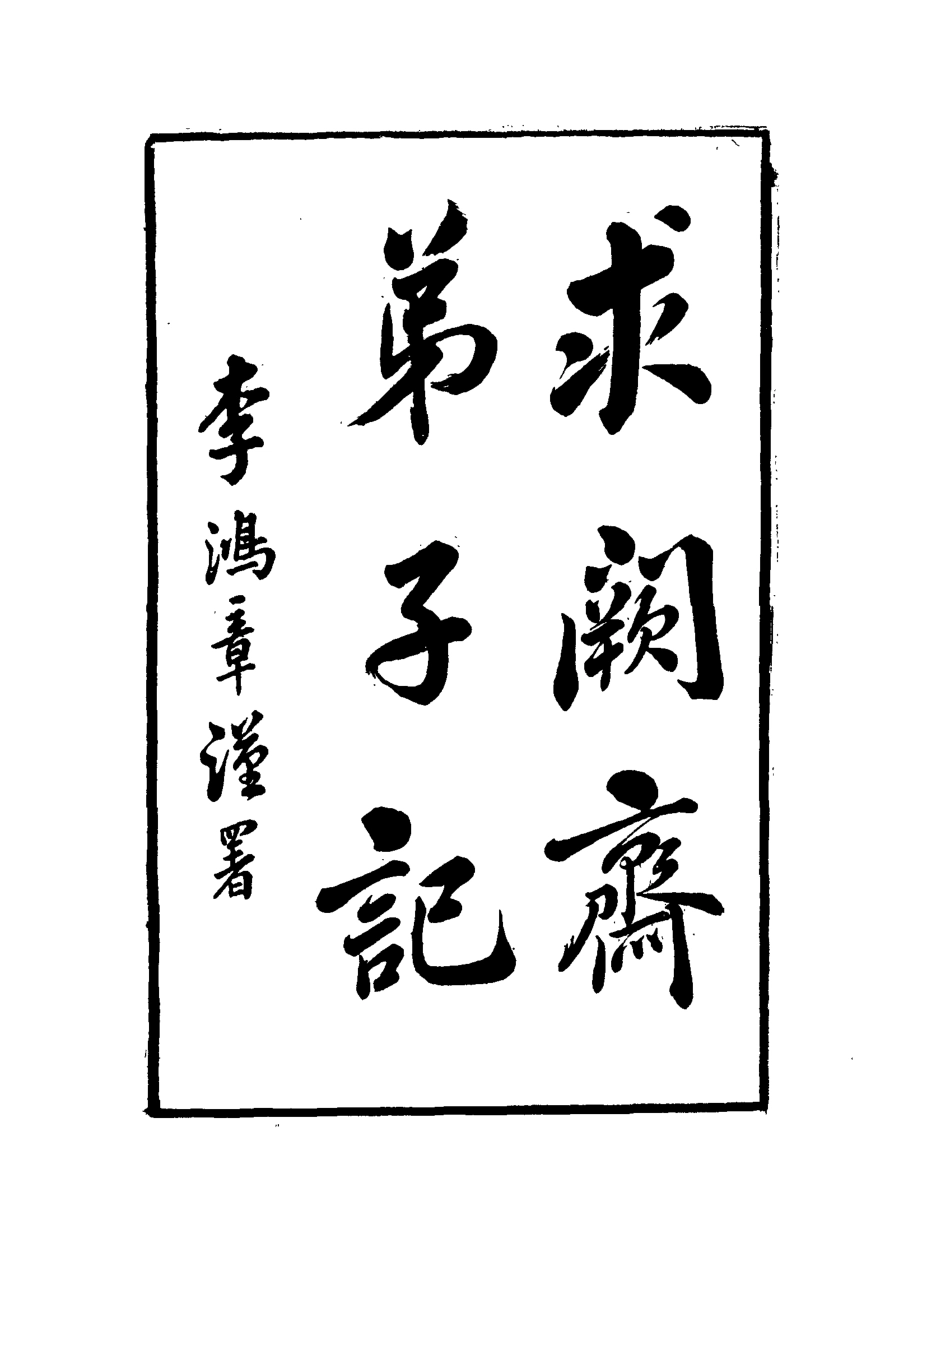 求闕齋
弟子記
李鴻章謹署